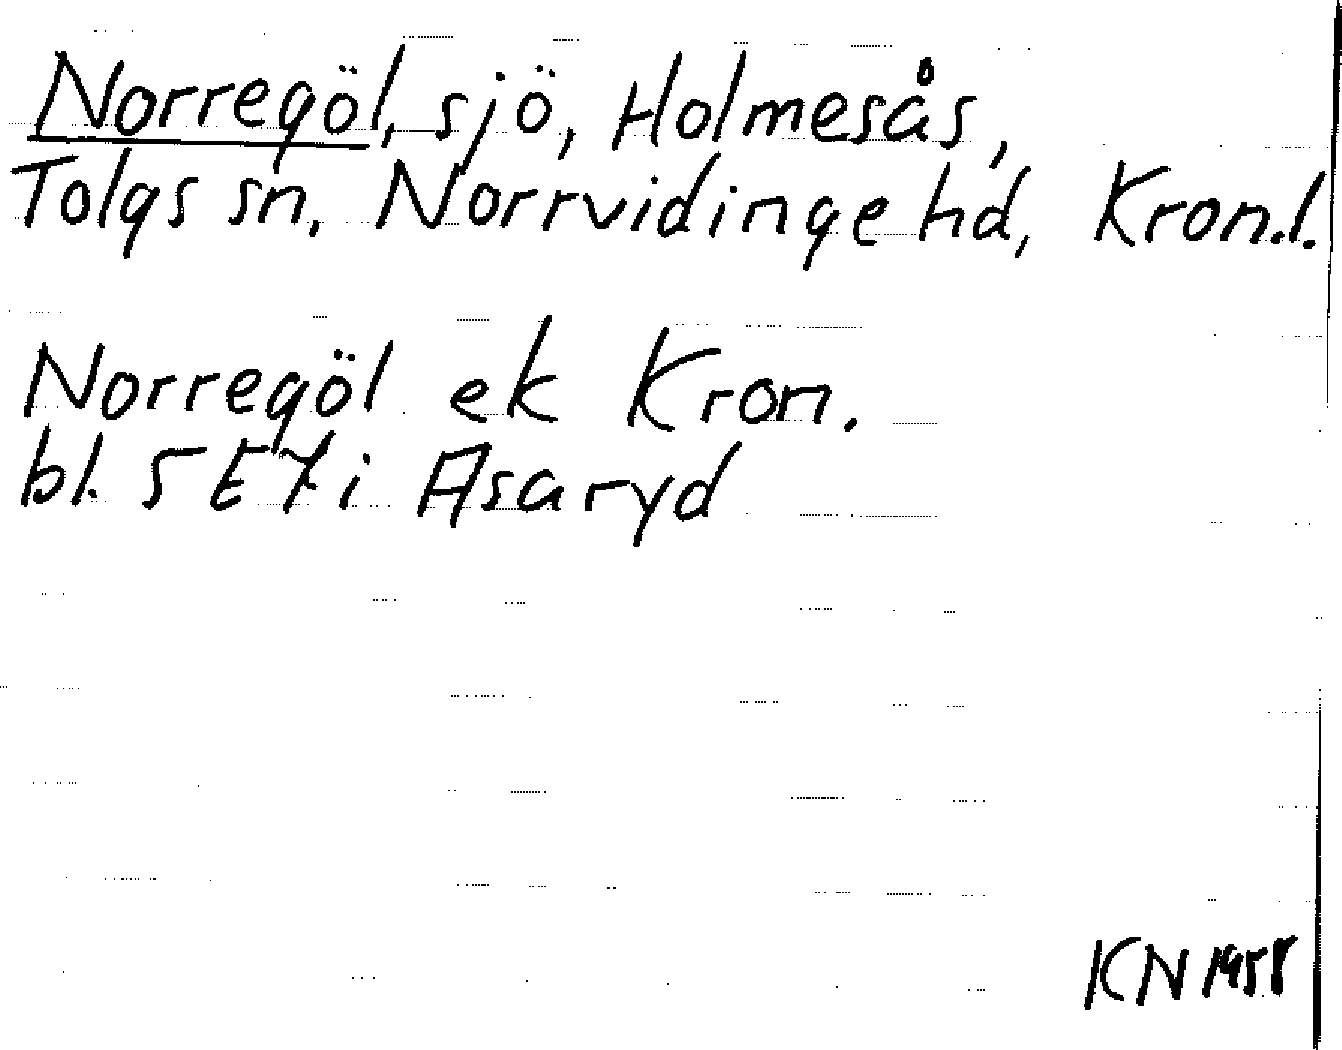 Norregöl, sjö, Holmesås,
Tolgs sn, Norrvidinge hd, Kron.l.
Norregöl ek Kron.
bl. 5 E 7 i Asaryd
KN 1955